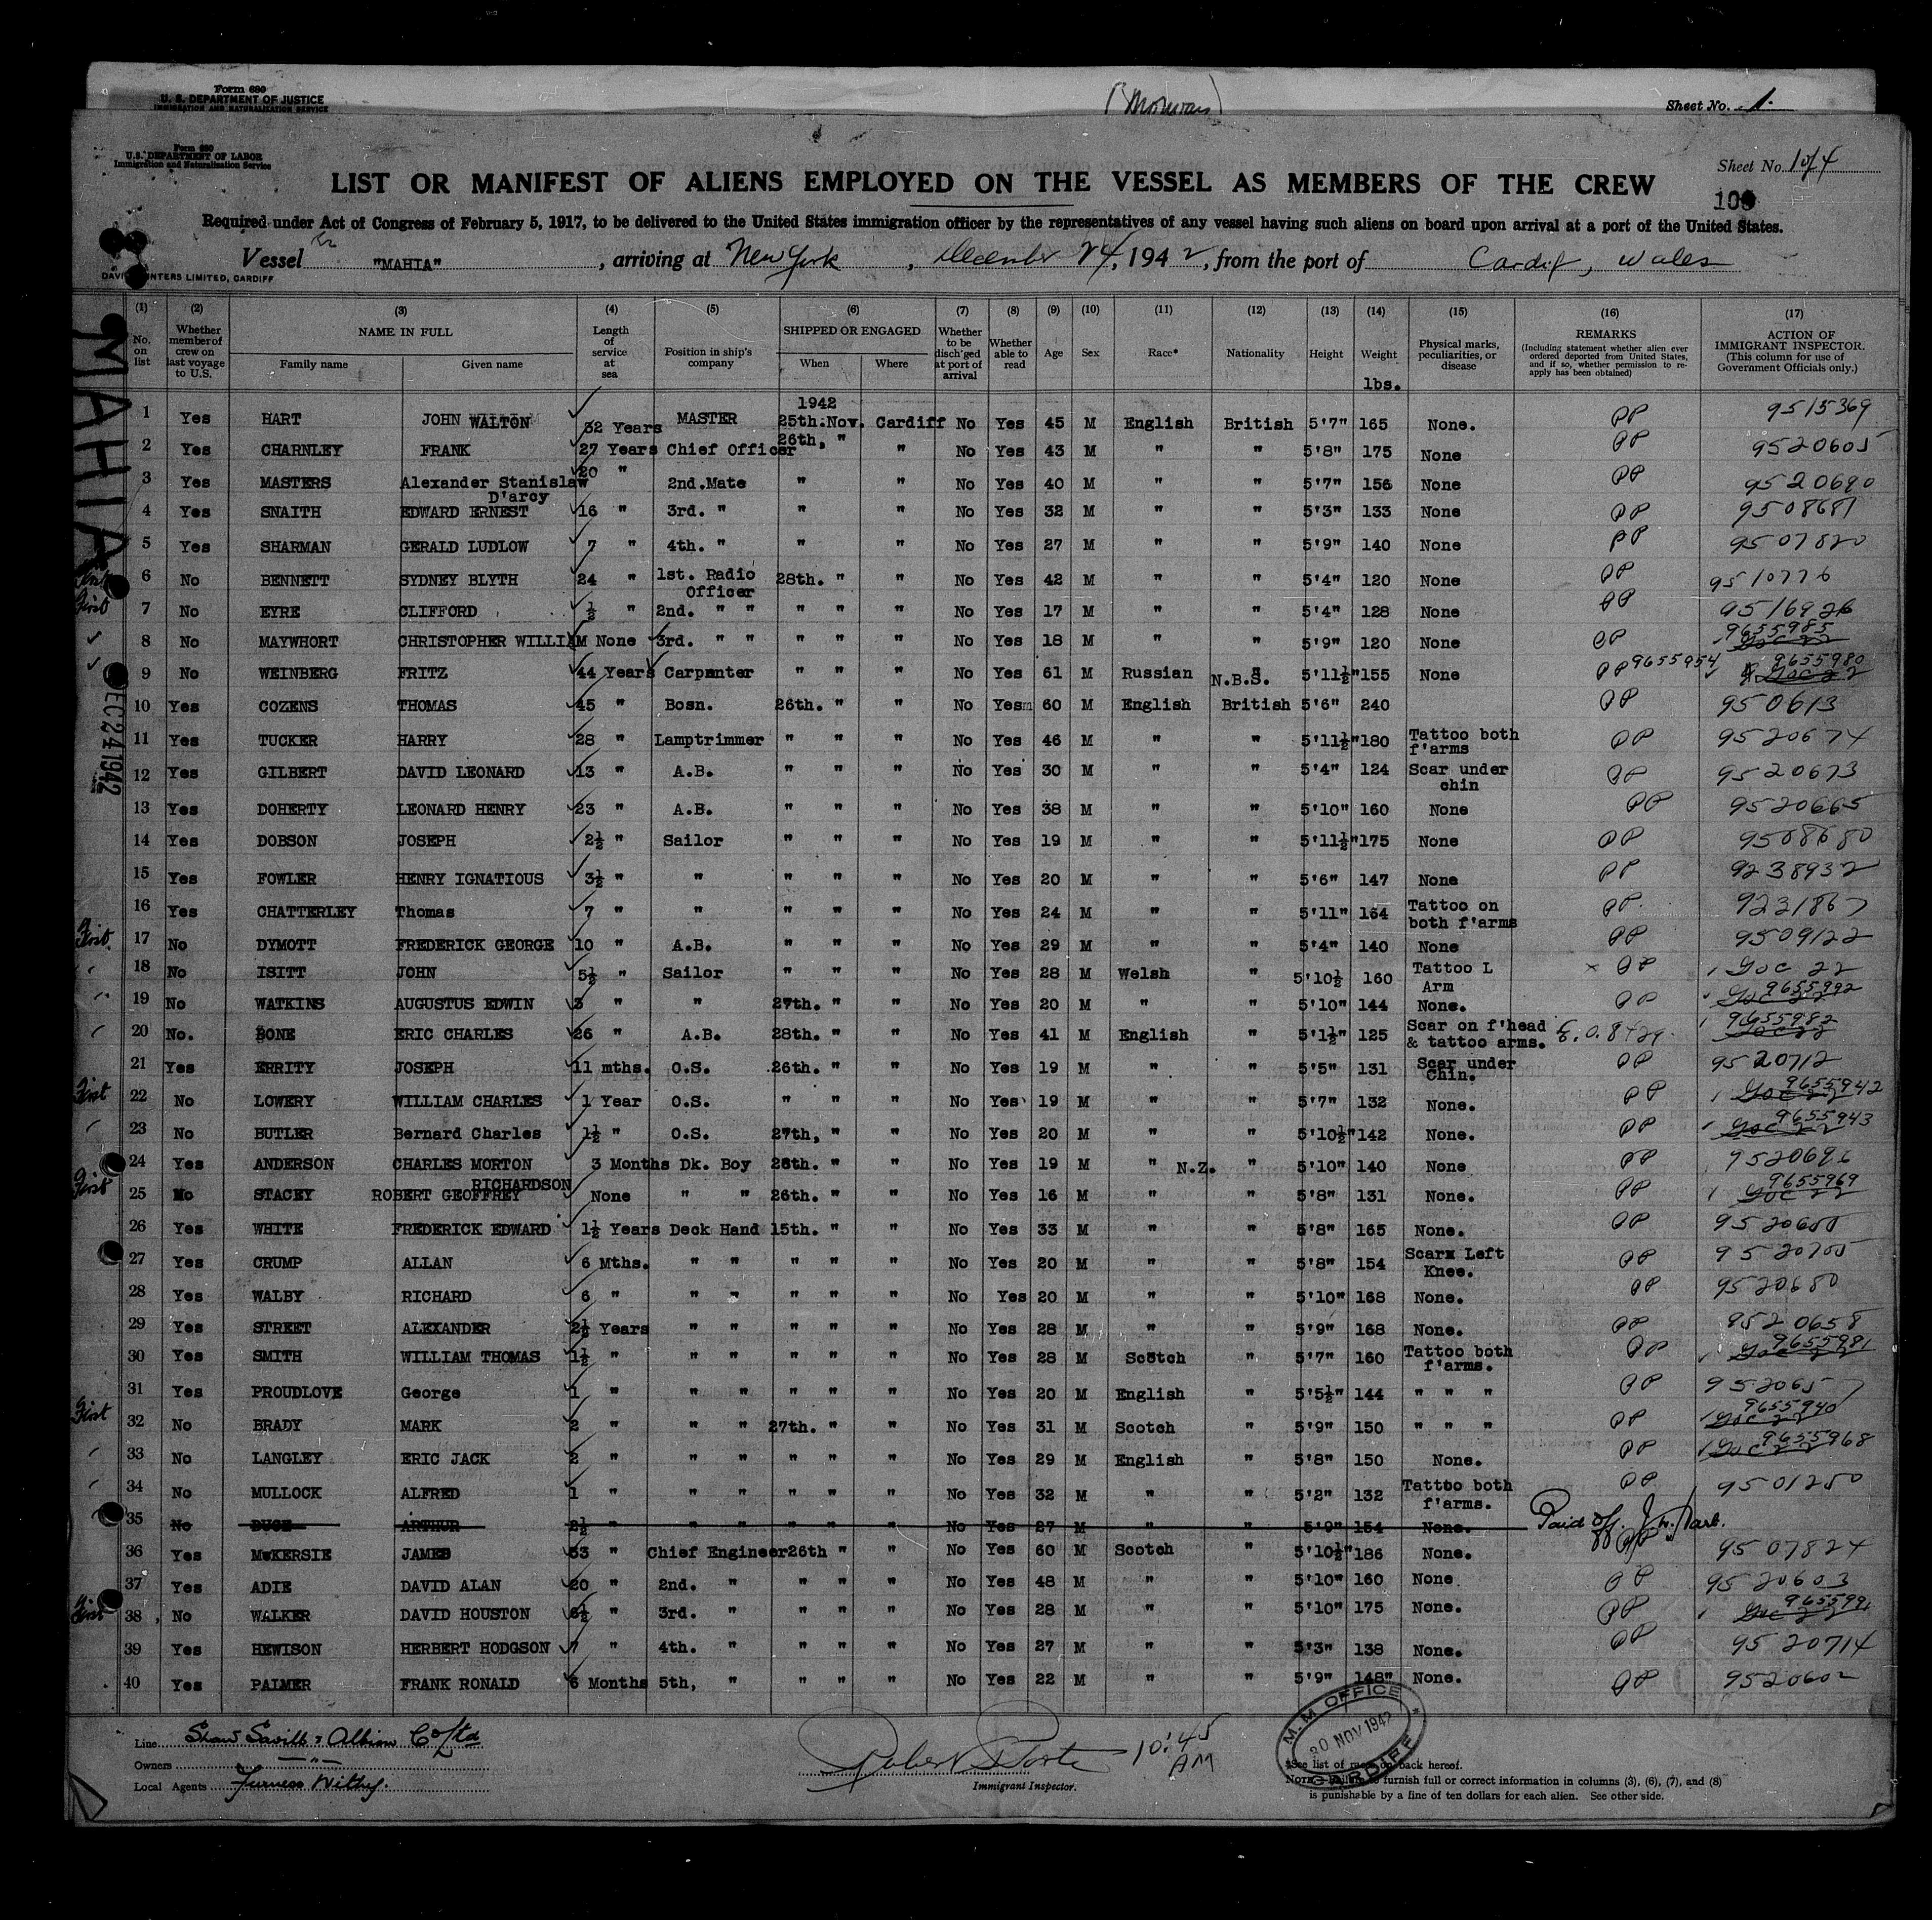 Form 680
U. S. DEPARTMENT OF JUSTICE
IMMIGRATION AND NATURALIZATION SERVICE
Sheet No. 1.
Form 680
U.S. DEPARTMENT OF LABOR
Immigration and Naturalization Service
Sheet No. 1 of 4
LIST OR MANIFEST OF ALIENS EMPLOYED ON THE VESSEL AS MEMBERS OF THE CREW
Required under Act of Congress of February 5, 1917, to be delivered to the United States immigration officer by the representatives of any vessel having such aliens on board upon arrival at a port of the United States.
Vessel Br "MAHIA", arriving at New York, December 24, 1942, from the port of Cardiff, Wales
LIMITED, CARDIFF
MAHIA
(1) (2) (3) (4) (5) (6) (7) (8) (9) (10) (11) (12) (13) (14) (15) (16) (17)
No. on list Whether member of crew on last voyage to U.S. NAME IN FULL Family name Given name Length of service at sea Position in ship's company SHIPPED OR ENGAGED When Where Whether to be disch'ged at port of arrival Whether able to read Age Sex Race* Nationality Height Weight lbs. Physical marks, peculiarities, or disease REMARKS (Including statement whether alien ever ordered deported from United States, and if so, whether permission to re-apply has been obtained) ACTION OF IMMIGRANT INSPECTOR. (This column for use of Government Officials only.)
1942
1 Yes HART JOHN WALTON 32 Years MASTER 25th.Nov. Cardiff No Yes 45 M English British 5'7" 165 None. PP 9515369
2 Yes CHARNLEY FRANK 27 Years Chief Officer 26th, " " No Yes 43 M " " 5'8" 175 None PP 9520605
3 Yes MASTERS Alexander Stanislaw D'arcy 20 " 2nd.Mate " " No Yes 40 M " " 5'7" 156 None PP 9520690
4 Yes SNAITH EDWARD ERNEST 16 " 3rd. " " " No Yes 32 M " " 5'3" 133 None PP 9508681
5 Yes SHARMAN GERALD LUDLOW 7 " 4th. " " " No Yes 27 M " " 5'9" 140 None PP 9507820
6 No BENNETT SYDNEY BLYTH 24 " 1st. Radio Officer 28th. " " No Yes 42 M " " 5'4" 120 None PP 9510776
First 7 No EYRE CLIFFORD ½ " 2nd. " " " " " No Yes 17 M " " 5'4" 128 None PP 9516926
8 No MAYWHORT CHRISTOPHER WILLIAM None 3rd. " " " " " No Yes 18 M " " 5'9" 120 None PP 9655985
9 No WEINBERG FRITZ 44 Years Carpenter " " " No Yes 61 M Russian N.B.S. 5'11½" 155 None PP 9655954 9655980
10 Yes COZENS THOMAS 45 " Bosn. 26th. " " No Yes 60 M English British 5'6" 240 PP 950613
11 Yes TUCKER HARRY 28 " Lamptrimmer " " " No Yes 46 M " " 5'11½" 180 Tattoo both f'arms PP 9520674
12 Yes GILBERT DAVID LEONARD 13 " A.B. " " " No Yes 30 M " " 5'4" 124 Scar under chin PP 9520673
13 Yes DOHERTY LEONARD HENRY 23 " A.B. " " " No Yes 38 M " " 5'10" 160 None PP 9520665
14 Yes DOBSON JOSEPH 2½ " Sailor " " " No Yes 19 M " " 5'11½" 175 None PP 9508680
15 Yes FOWLER HENRY IGNATIOUS 3½ " " " " " No Yes 20 M " " 5'6" 147 None PP 9238932
16 Yes CHATTERLEY Thomas 7 " " " " " No Yes 24 M " " 5'11" 164 Tattoo on both f'arms PP. 9231867
First 17 No DYMOTT FREDERICK GEORGE 10 " A.B. " " " No Yes 29 M " " 5'4" 140 None PP 9509122
18 No ISITT JOHN 5½ " Sailor " " " No Yes 28 M Welsh " 5'10½ 160 Tattoo L Arm x PP
19 No WATKINS AUGUSTUS EDWIN 3 " " 27th. " " No Yes 20 M " " 5'10" 144 None. PP 9655992
20 No. BONE ERIC CHARLES 26 " A.B. 28th. " " No Yes 41 M English " 5'1½" 125 Scar on f'head & tattoo arms. 9655982
21 Yes ERRITY JOSEPH 11 mths. O.S. 26th. " " No Yes 19 M " " 5'5" 131 Scar under Chin. PP 9520712
First 22 No LOWERY WILLIAM CHARLES 1 Year O.S. " " " No Yes 19 M " " 5'7" 132 None. PP 9655942
23 No BUTLER Bernard Charles 1½ " O.S. 27th, " " No Yes 20 M " " 5'10½" 142 None. PP 9655943
24 Yes ANDERSON CHARLES MORTON 3 Months Dk. Boy 28th. " " No Yes 19 M " N.Z. " 5'10" 140 None PP 9520696
First 25 No STACEY ROBERT GEOFFREY RICHARDSON None " " 26th. " " No Yes 16 M " " 5'8" 131 None. PP 9655969
26 Yes WHITE FREDERICK EDWARD 1½ Years Deck Hand 15th. " " No Yes 33 M " " 5'8" 165 None. PP
27 Yes CRUMP ALLAN 6 Mths. " " " " " No Yes 20 M " " 5'8" 154 Scarx Left Knee. PP 9520705
28 Yes WALBY RICHARD 6 " " " " " " No Yes 20 M " " 5'10" 168 None. PP 9520680
29 Yes STREET ALEXANDER 2½ Years " " " " " No Yes 28 M " " 5'9" 168 None. PP 9520658
30 Yes SMITH WILLIAM THOMAS 1½ " " " " " " No Yes 28 M Scotch " 5'7" 160 Tattoo both f'arms. PP 9655981
31 Yes PROUDLOVE George 1 " " " " " " No Yes 20 M English " 5'5½" 144 " " " PP 9520657
First 32 No BRADY MARK 2 " " " 27th. " " No Yes 31 M Scotch " 5'9" 150 " " " PP 9655940
33 No LANGLEY ERIC JACK 2 " " " " " " No Yes 29 M English " 5'8" 150 None. PP 9655968
34 No MULLOCK ALFRED 1 " " " " " " No Yes 32 M " " 5'2" 132 Tattoo both f'arms. PP 9501250
35 No DUCE ARTHUR 2½ " " " " " " No Yes 27 M " " 5'9" 154 None. Paid off.
36 Yes McKERSIE JAMES 33 " Chief Engineer 26th " " No Yes 60 M Scotch " 5'10½" 186 None. PP 9507824
37 Yes ADIE DAVID ALAN 20 " 2nd. " " " " No Yes 48 M " " 5'10" 160 None PP 9520603
First 38 No WALKER DAVID HOUSTON 6½ " 3rd. " " " " No Yes 28 M " " 5'10" 175 None. PP 9655991
39 Yes HEWISON HERBERT HODGSON 7 " 4th. " " " " No Yes 27 M " " 5'3" 138 None. PP 9520714
40 Yes PALMER FRANK RONALD 6 Months 5th, " " " " No Yes 22 M " " 5'9" 148" None. PP 9520602
Line Shaw Savill & Albion Co Ltd
Owners "
Local Agents Furness Withy.
10:45 AM
Immigrant Inspector.
M.M OFFICE
30 NOV 1942
CARDIFF
*See list of races on back hereof.
NOTE.—Failure to furnish full or correct information in columns (3), (6), (7), and (8)
is punishable by a fine of ten dollars for each alien. See other side.